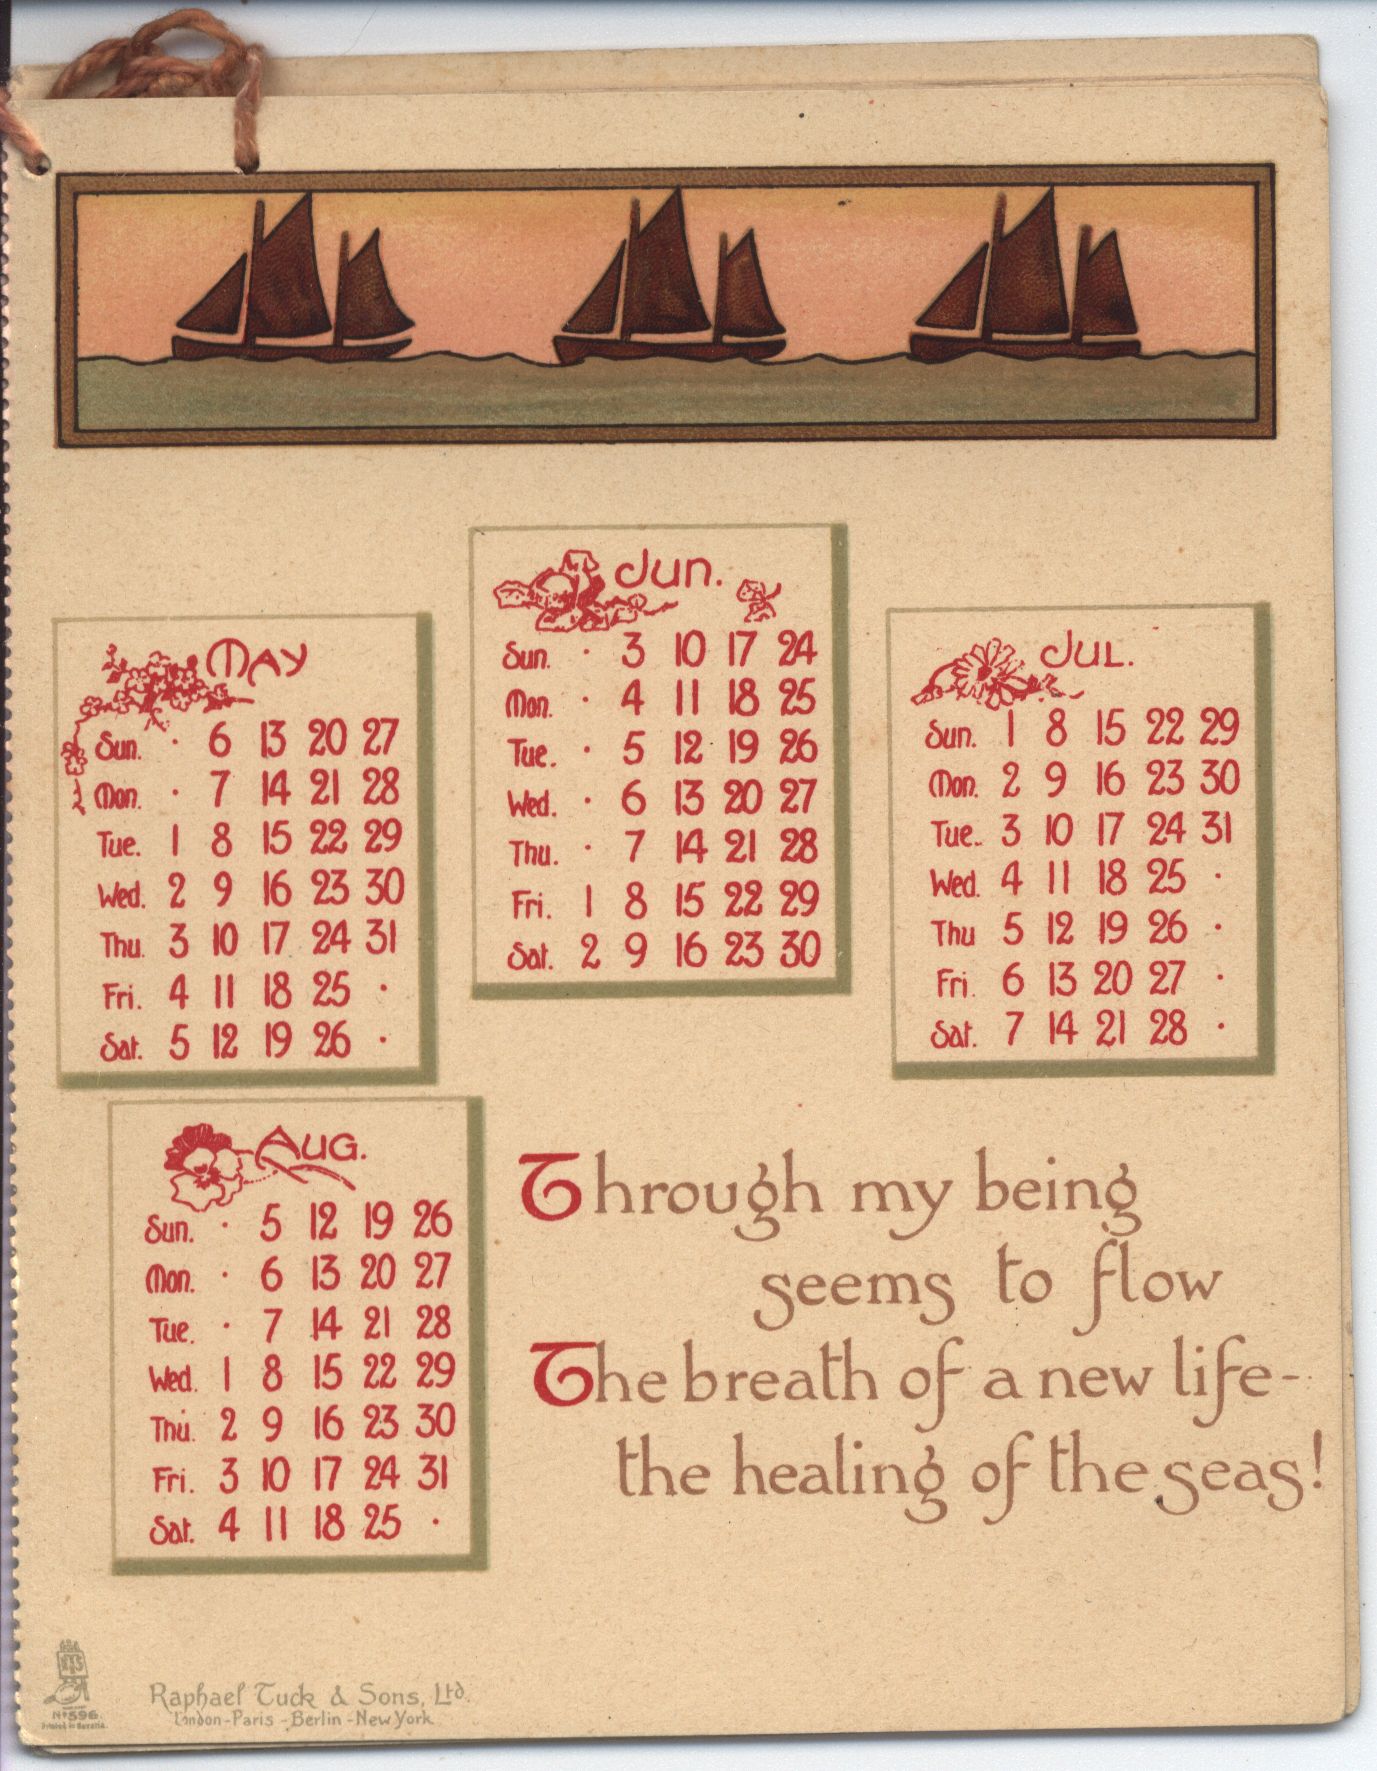 May
Sun. · 6 13 20 27
Mon. · 7 14 21 28
Tue. 1 8 15 22 29
Wed. 2 9 16 23 30
Thu. 3 10 17 24 31
Fri. 4 11 18 25 ·
Sat. 5 12 19 26 ·
Jun.
Sun. · 3 10 17 24
Mon. · 4 11 18 25
Tue. · 5 12 19 26
Wed. · 6 13 20 27
Thu. · 7 14 21 28
Fri. 1 8 15 22 29
Sat. 2 9 16 23 30
Jul.
Sun. 1 8 15 22 29
Mon. 2 9 16 23 30
Tue. 3 10 17 24 31
Wed. 4 11 18 25 ·
Thu 5 12 19 26 ·
Fri. 6 13 20 27 ·
Sat. 7 14 21 28 ·
Aug.
Sun. · 5 12 19 26
Mon. · 6 13 20 27
Tue. · 7 14 21 28
Wed. 1 8 15 22 29
Thu. 2 9 16 23 30
Fri. 3 10 17 24 31
Sat. 4 11 18 25 ·
Through my being
seems to flow
The breath of a new life-
the healing of the seas!
Nº 596.
Printed in Bavaria.
Raphael Tuck & Sons, Ltd.
London-Paris-Berlin-New York